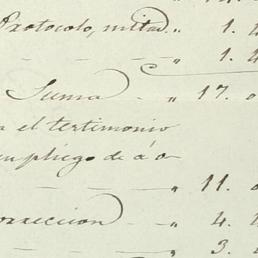 Protocolo, mitad " 1.
" 1.
Suma " 17.
el testimonio
en pliego de a
" 11.
" 4.
" 3.